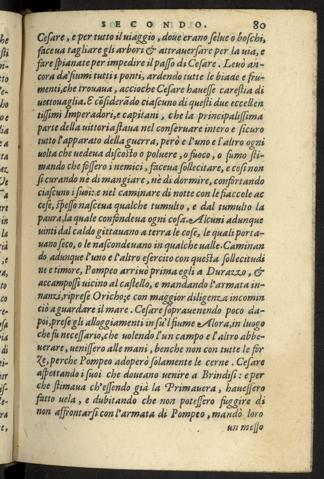 SECONDO. 80
Cesare, e per tutto il viaggio, doue erano selue o boschi,
faceua tagliare gli arbori & attrauersare per la via, e
fare spianate per impedire il passo di Cesare. Leuò an-
cora da'fiumi tutti i ponti, ardendo tutte le biade e fru-
menti, che trouaua, accioche Cesare hauesse carestia di
vettouaglia. E cōsiderādo ciascuno di questi due eccellen
tissimi Imperadori, e capitani, che la principalissima
parte della vittoria staua nel conseruare intero e sicuro
tutto l'apparato della guerra, però e l'uno e l'altro ogni
volta che vedeua discosto o poluere, o fuoco, o fumo sti-
mando che fossero i nemici, faceua sollecitare, e cosi non
si curando nè di mangiare, nè di dormire, confortando
ciascuno i suoi: e nel caminare di notte con le fiaccole ac
cese, spesso nasceua qualche tumulto, e dal tumulto la
paura, la quale confondeua ogni cosa. Alcuni adunque
vinti dal caldo gittauano a terra le cose, le quali porta-
uano seco, o le nascondeuano in qualche valle. Caminan
do adunque l'uno e l'altro esercito con questa sollecitudi
ne e timore, Pompeo arriuò prima egli a Durazzo, &
accampossi vicino al castello, e mandando l'armata in-
nanzi, riprese Oricho: e con maggior diligenza incomin
ciò a guardare il mare. Cesare sopravenendo poco da-
poi, prese gli alloggiamenti in su'l fiume Alora, in luogo
che fu necessario, che volendo l'un campo e l'altro abbe-
uerare, venissero alle mani, benche non con tutte le for
ze, perche Pompeo adoperò solamente le cerne. Cesare
aspettando i suoi che doueano venire a Brindisi: e per
che stimaua ch'essendo già la Primauera, hauessero
fatto vela, e dubitando che non potessero fuggire di
non affrontarsi con l'armata di Pompeo, mandò loro
un messo